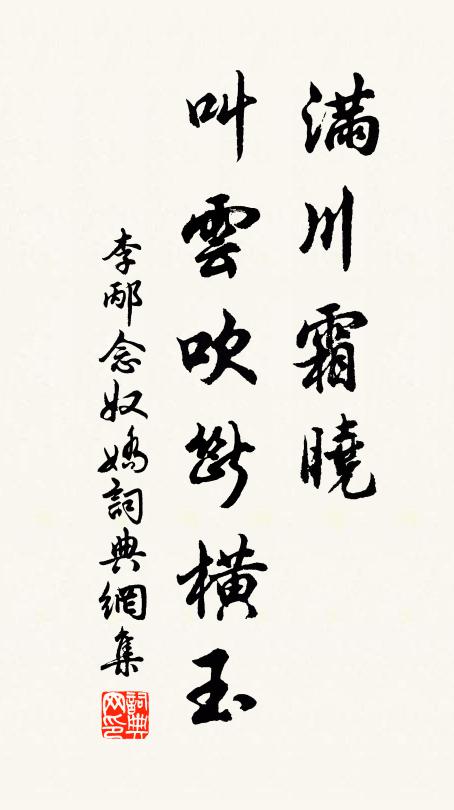 滿川霜曉
叫雲吹斷橫玉
李邴念奴嬌詞典網集
詞典網印